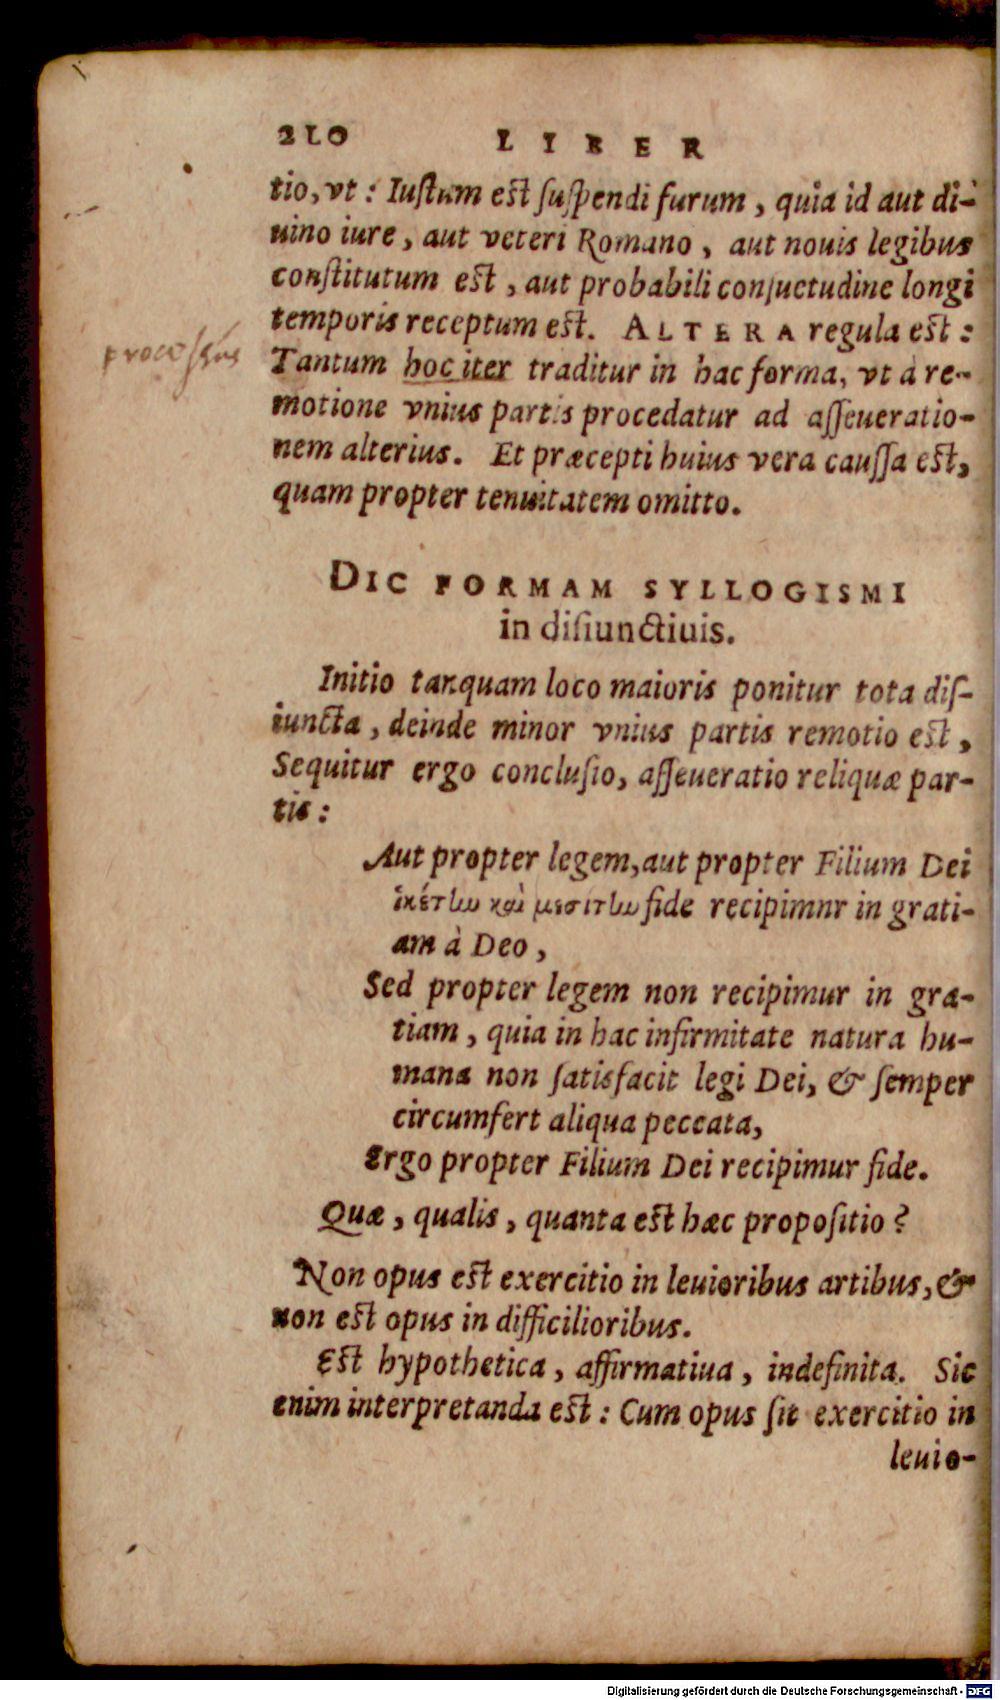 210 LIBER
tio, vt: Iustum est suspendi furum, quia id aut di-
uino iure, aut veteri Romano, aut nouis legibus
constitutum est, aut probabili consuetudine longi
temporis receptum est. ALTERA regula est:
processus
Tantum hoc iter traditur in hac forma, vt à re-
motione vnius partis procedatur ad asseueratio-
nem alterius. Et præcepti huius vera caussa est,
quam propter tenuitatem omitto.
DIC FORMAM SYLLOGISMI
in disiunctiuis.
Initio tanquam loco maioris ponitur tota dis-
iuncta, deinde minor vnius partis remotio est,
Sequitur ergo conclusio, asseueratio reliquæ par-
tis:
Aut propter legem, aut propter Filium Dei
ἱκέτην καὶ μεσίτην fide recipimnr in grati-
am à Deo,
Sed propter legem non recipimur in gra-
tiam, quia in hac infirmitate natura hu-
mana non satisfacit legi Dei, & semper
circumfert aliqua peccata,
Ergo propter Filium Dei recipimur fide.
Quæ, qualis, quanta est hæc propositio?
Non opus est exercitio in leuioribus artibus, &
non est opus in difficilioribus.
Est hypothetica, affirmatiua, indefinita. Sic
enim interpretanda est: Cum opus sit exercitio in
leuio-
Digitalisierung gefördert durch die Deutsche Forschungsgemeinschaft - DFG